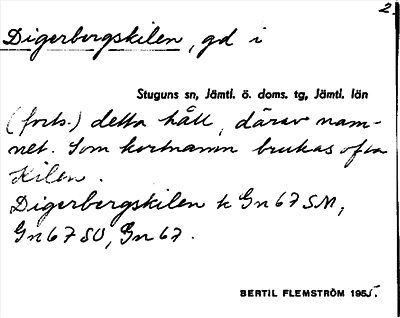 2.
Digerbergskilen, gd i
Stuguns sn, Jämtl. ö. doms. tg, Jämtl. län
(forts.) detta håll, därav nam-
net. Som kortnamn brukas ofta
Kilen.
Digerbergskilen k Gn67SM,
Gn67SO, Gn67.
BERTIL FLEMSTRÖM 1955.